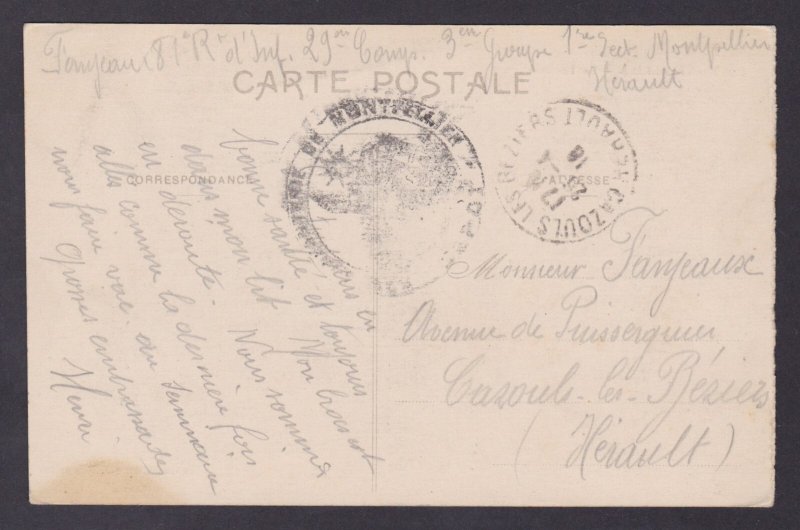 Fanjeaux 81e Rt d'Inf. 29em Comp. 3em Groupe 1re Sect. Montpellier
Hérault
CARTE POSTALE
CORRESPONDANCE
ADRESSE
DE MONTPELLIER
CAZOULS LES BEZIERS
HERAULT
bonne santé et toujours
dans mon lit
en déroute. Nous sommes
allés comme la dernière fois
nous faire voir au
Grosses embrassades
Henri
Monsieur Fanjeaux
Avenue de Puisserguier
Cazouls-les-Béziers
(Hérault)